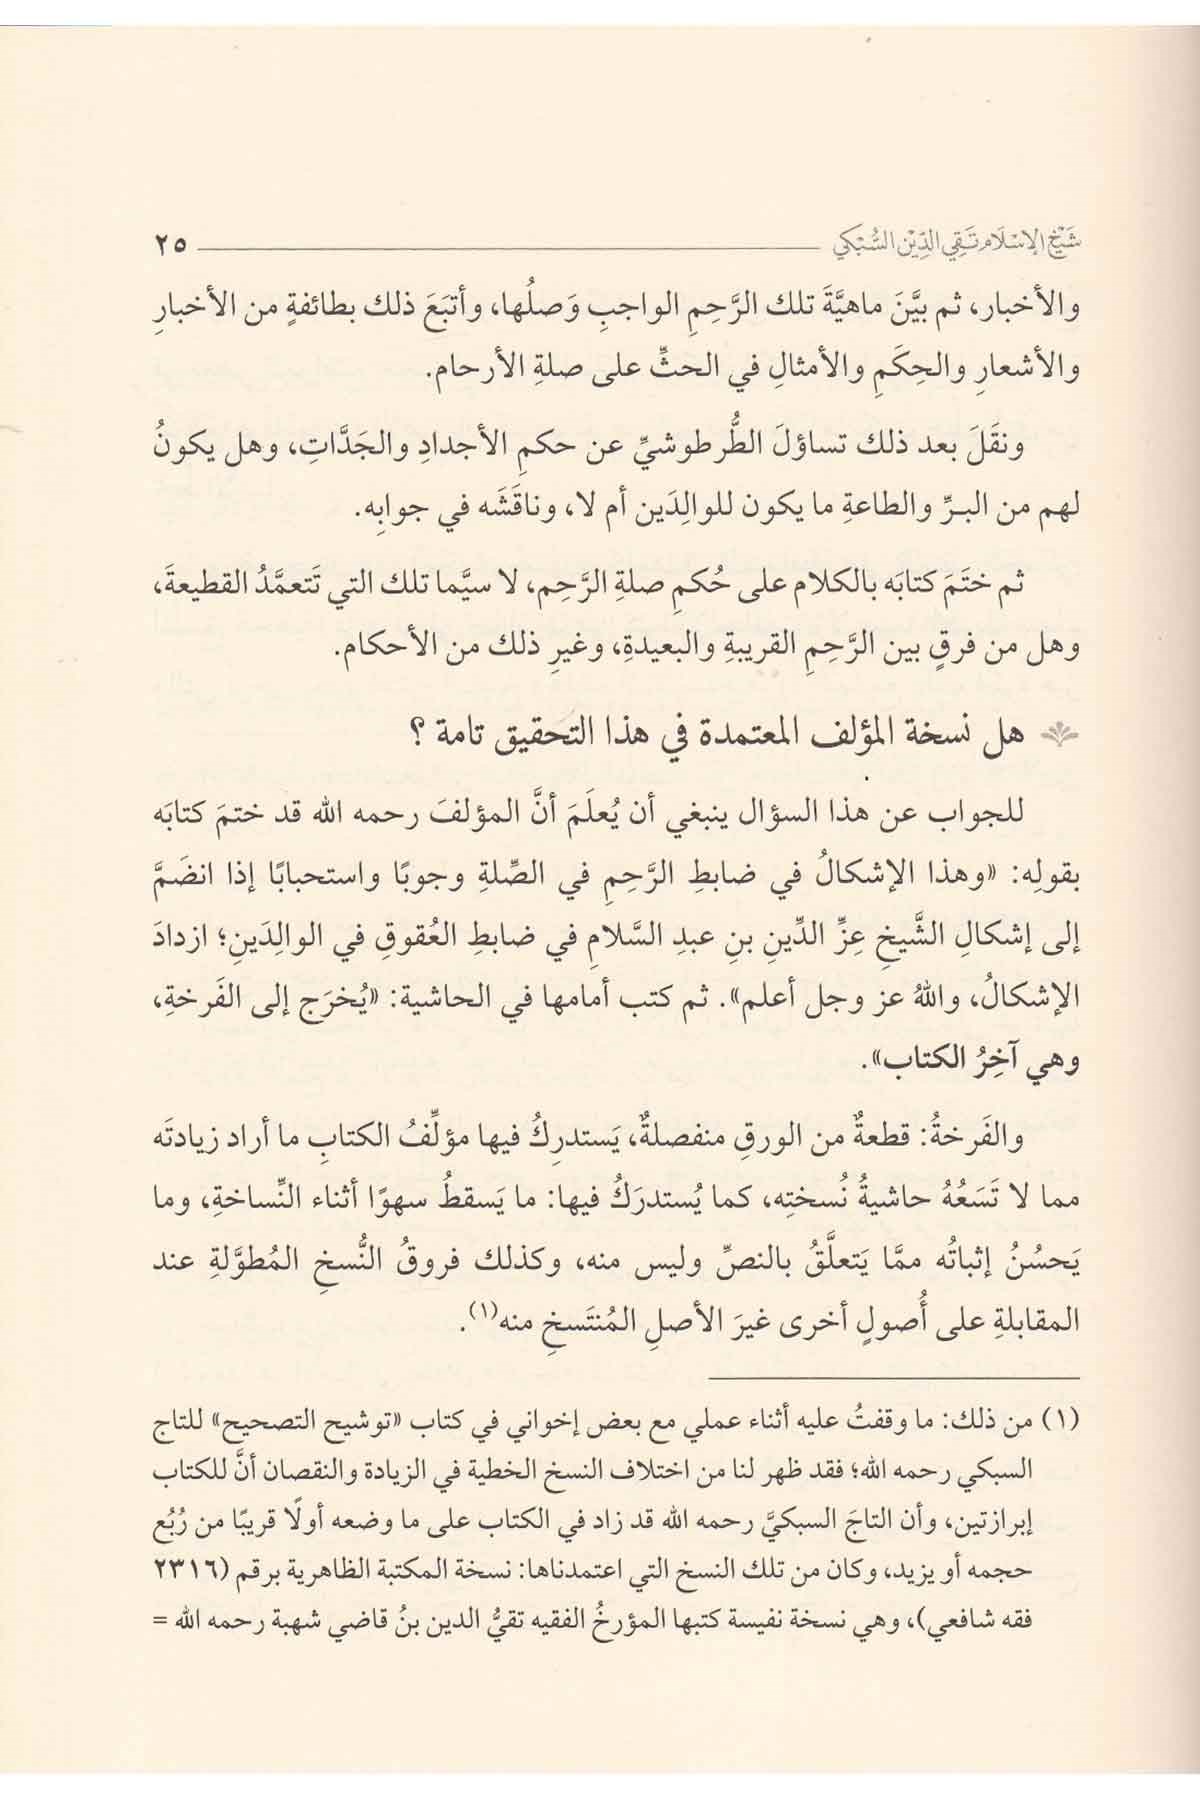 شيخ الإسلام تقي الدين السبكي ٢٥
والأخبار، ثم بيَّنَ ماهيَّةَ تلك الرَّحِمِ الواجبِ وَصلُها، وأتبَعَ ذلك بطائفةٍ من الأخبارِ
والأشعارِ والحِكَمِ والأمثالِ في الحثِّ على صلةِ الأرحام.
ونقَلَ بعد ذلك تساؤلَ الطُّرطوشيِّ عن حكمِ الأجدادِ والجَدَّاتِ، وهل يكونُ
لهم من البـرِّ والطاعةِ ما يكون للوالِدَين أم لا، وناقَشَه في جوابِه.
ثم ختَمَ كتابَه بالكلام على حُكمِ صلةِ الرَّحِم، لا سيَّما تلك التي تَتعمَّدُ القطيعةَ،
وهل من فرقٍ بين الرَّحِمِ القريبةِ والبعيدةِ، وغيرِ ذلك من الأحكام.
هل نسخة المؤلف المعتمدة في هذا التحقيق تامة ؟
للجواب عن هذا السؤال ينبغي أن يُعلَمَ أنَّ المؤلفَ رحمه الله قد ختمَ كتابَه
بقولِه: «وهذا الإشكالُ في ضابطِ الرَّحِمِ في الصِّلةِ وجوبًا واستحبابًا إذا انضَمَّ
إلى إشكالِ الشَّيخِ عِزِّ الدِّينِ بنِ عبدِ السَّلامِ في ضابطِ العُقوقِ في الوالِدَينِ؛ ازدادَ
الإشكالُ، واللهُ عز وجل أعلم». ثم كتب أمامها في الحاشية: «يُخرَج إلى الفَرخةِ،
وهي آخِرُ الكتاب».
والفَرخةُ: قطعةٌ من الورقِ منفصلةٌ، يَستدرِكُ فيها مؤلِّفُ الكتابِ ما أراد زيادتَه
مما لا تَسَعُهُ حاشيةُ نُسختِه، كما يُستدرَكُ فيها: ما يَسقطُ سهوًا أثناء النِّساخةِ، وما
يَحسُنُ إثباتُه ممَّا يَتعلَّقُ بالنصِّ وليس منه، وكذلك فروقُ النُّسخِ المُطوَّلةِ عند
المقابلةِ على أُصولٍ أخرى غيرَ الأصلِ المُنتَسخِ منه(١).
(١) من ذلك: ما وقفتُ عليه أثناء عملي مع بعض إخواني في كتاب «توشيح التصحيح» للتاج
السبكي رحمه الله؛ فقد ظهر لنا من اختلاف النسخ الخطية في الزيادة والنقصان أنَّ للكتاب
إبرازتين، وأن التاجَ السبكيَّ رحمه الله قد زاد في الكتاب على ما وضعه أولًا قريبًا من رُبُع
حجمه أو يزيد، وكان من تلك النسخ التي اعتمدناها: نسخة المكتبة الظاهرية برقم (٢٣١٦
فقه شافعي)، وهي نسخة نفيسة كتبها المؤرخُ الفقيه تقيُّ الدين بنُ قاضي شهبة رحمه الله =